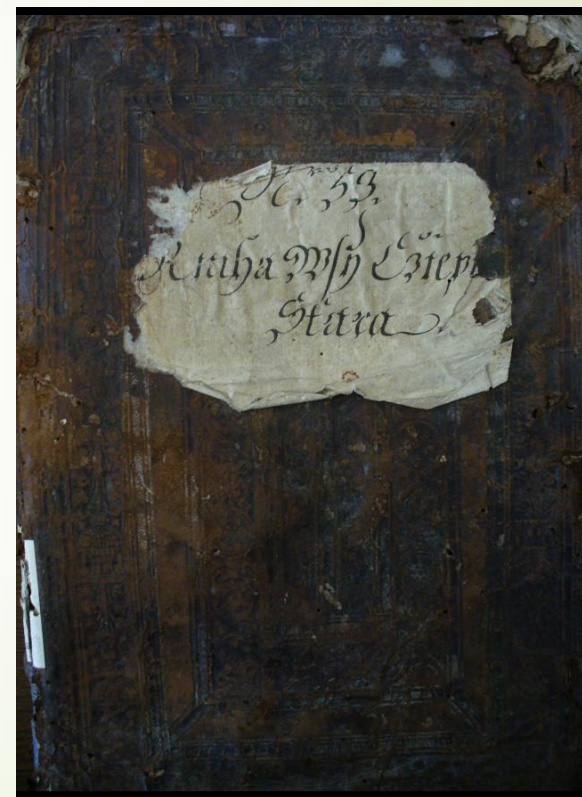 53.
Kniha Wsy Cžiep
Stara